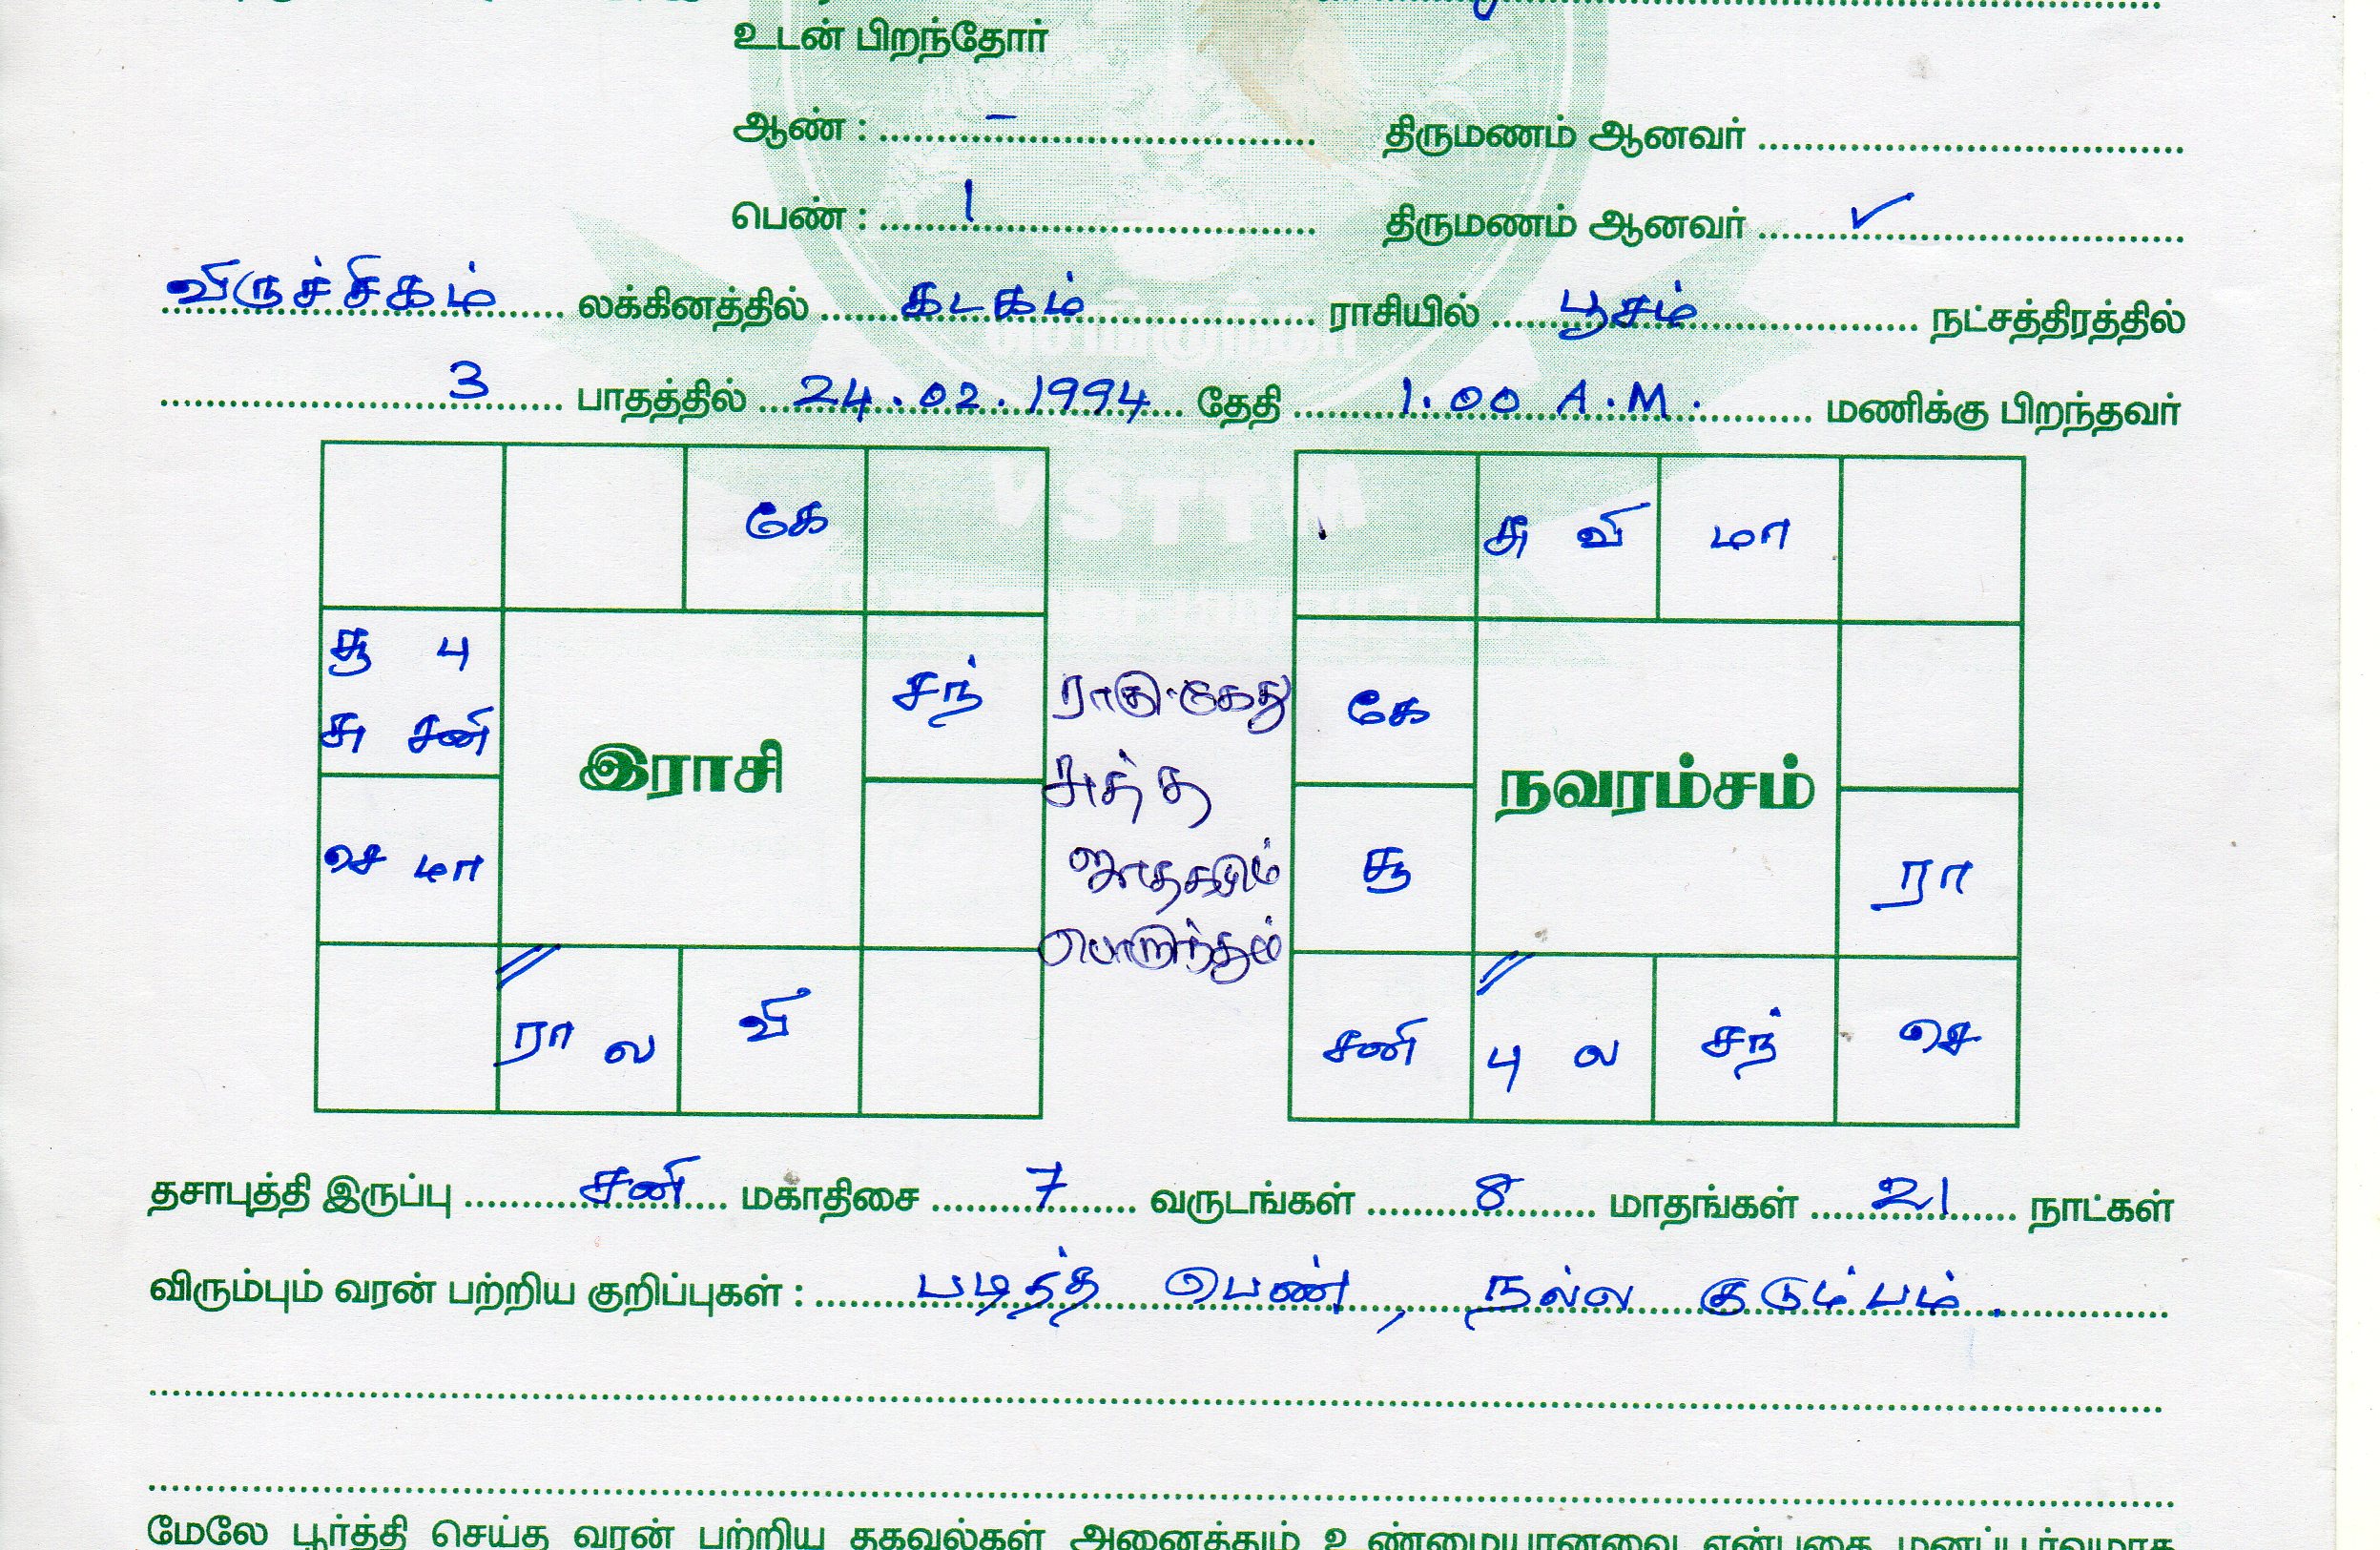 உடன் பிறந்தோர்
ஆண் : – திருமணம் ஆனவர்
பெண் : 1 திருமணம் ஆனவர் ✓
விருச்சிகம் லக்கினத்தில் கடகம் ராசியில் பூசம் நட்சத்திரத்தில்
3 பாதத்தில் 24.02.1994 தேதி 1.00 A.M. மணிக்கு பிறந்தவர்
VSTTM
கே
சூ பு
சு சனி
சந்
இராசி
செ மா
ரா ல
வி
ராகு-கேது
சுத்த
ஜாதகமும்
பொருந்தும்
சு வி
மா
கே
நவரம்சம்
சூ
ரா
சனி
பு ல
சந்
செ
தசாபுத்தி இருப்பு சனி மகாதிசை 7 வருடங்கள் 8 மாதங்கள் 21 நாட்கள்
விரும்பும் வரன் பற்றிய குறிப்புகள் : படித்த பெண், நல்ல குடும்பம்.
மேலே பூர்த்தி செய்த வரன் பற்றிய தகவல்கள் அனைத்தும் உண்மையானவை என்பதை மனப்பூர்வமாக